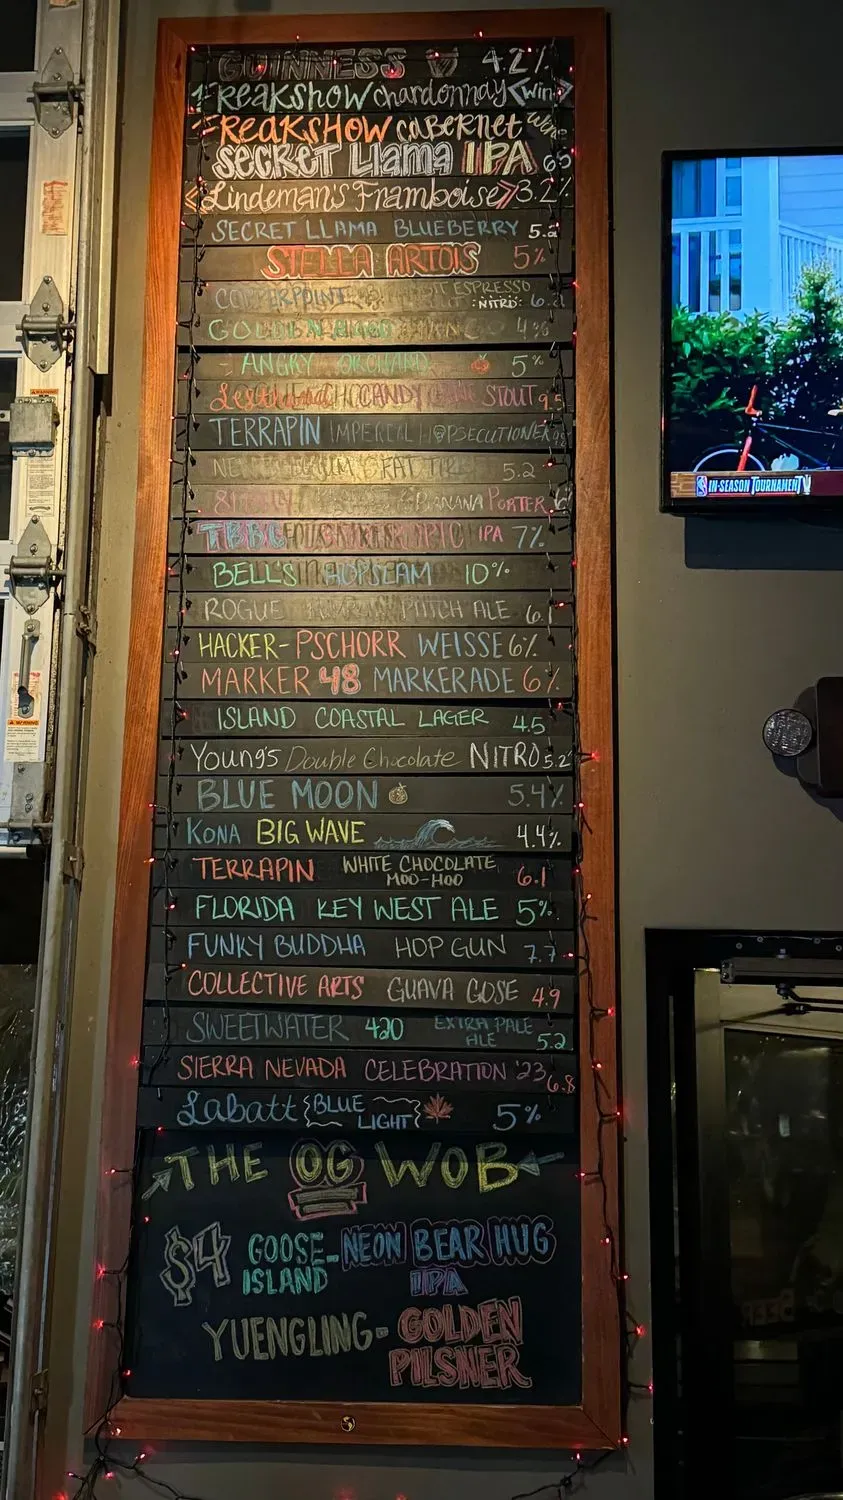 GUINNESS 4.2%
FREAKSHOW chardonnay <wine>
FREAKSHOW cabernet wine
SECRET Llama IPA 6.5
<Lindeman's Framboise> 3.2%
SECRET LLAMA BLUEBERRY 5.2
STELLA ARTOIS 5%
ESPRESSO
:NITRO:
GOLDEN
ANGRY ORCHARD 5%
CANDY STOUT 9.5
TERRAPIN IMPERIAL HOPSECUTIONER
FAT TIRE 5.2
BANANA PORTER
TBBC IPA 7%
BELL'S HOPSLAM 10%
ROGUE PUNCH ALE 6.1
HACKER-PSCHORR WEISSE 6%
MARKER 48 MARKERADE 6%
ISLAND COASTAL LAGER 4.5
Young's Double Chocolate NITRO 5.2
BLUE MOON 5.4%
KONA BIG WAVE 4.4%
TERRAPIN WHITE CHOCOLATE
MOO-HOO 6.1
FLORIDA KEY WEST ALE 5%
FUNKY BUDDHA HOP GUN 7.7
COLLECTIVE ARTS GUAVA GOSE 4.9
SWEETWATER 420 EXTRA PALE
ALE 5.2
SIERRA NEVADA CELEBRATION '23 6.8
Labatt {BLUE
LIGHT} 5%
THE OG WOB
$4 GOOSE-
ISLAND NEON BEAR HUG
IPA
YUENGLING- GOLDEN
PILSNER
IN-SEASON TOURNAMENT